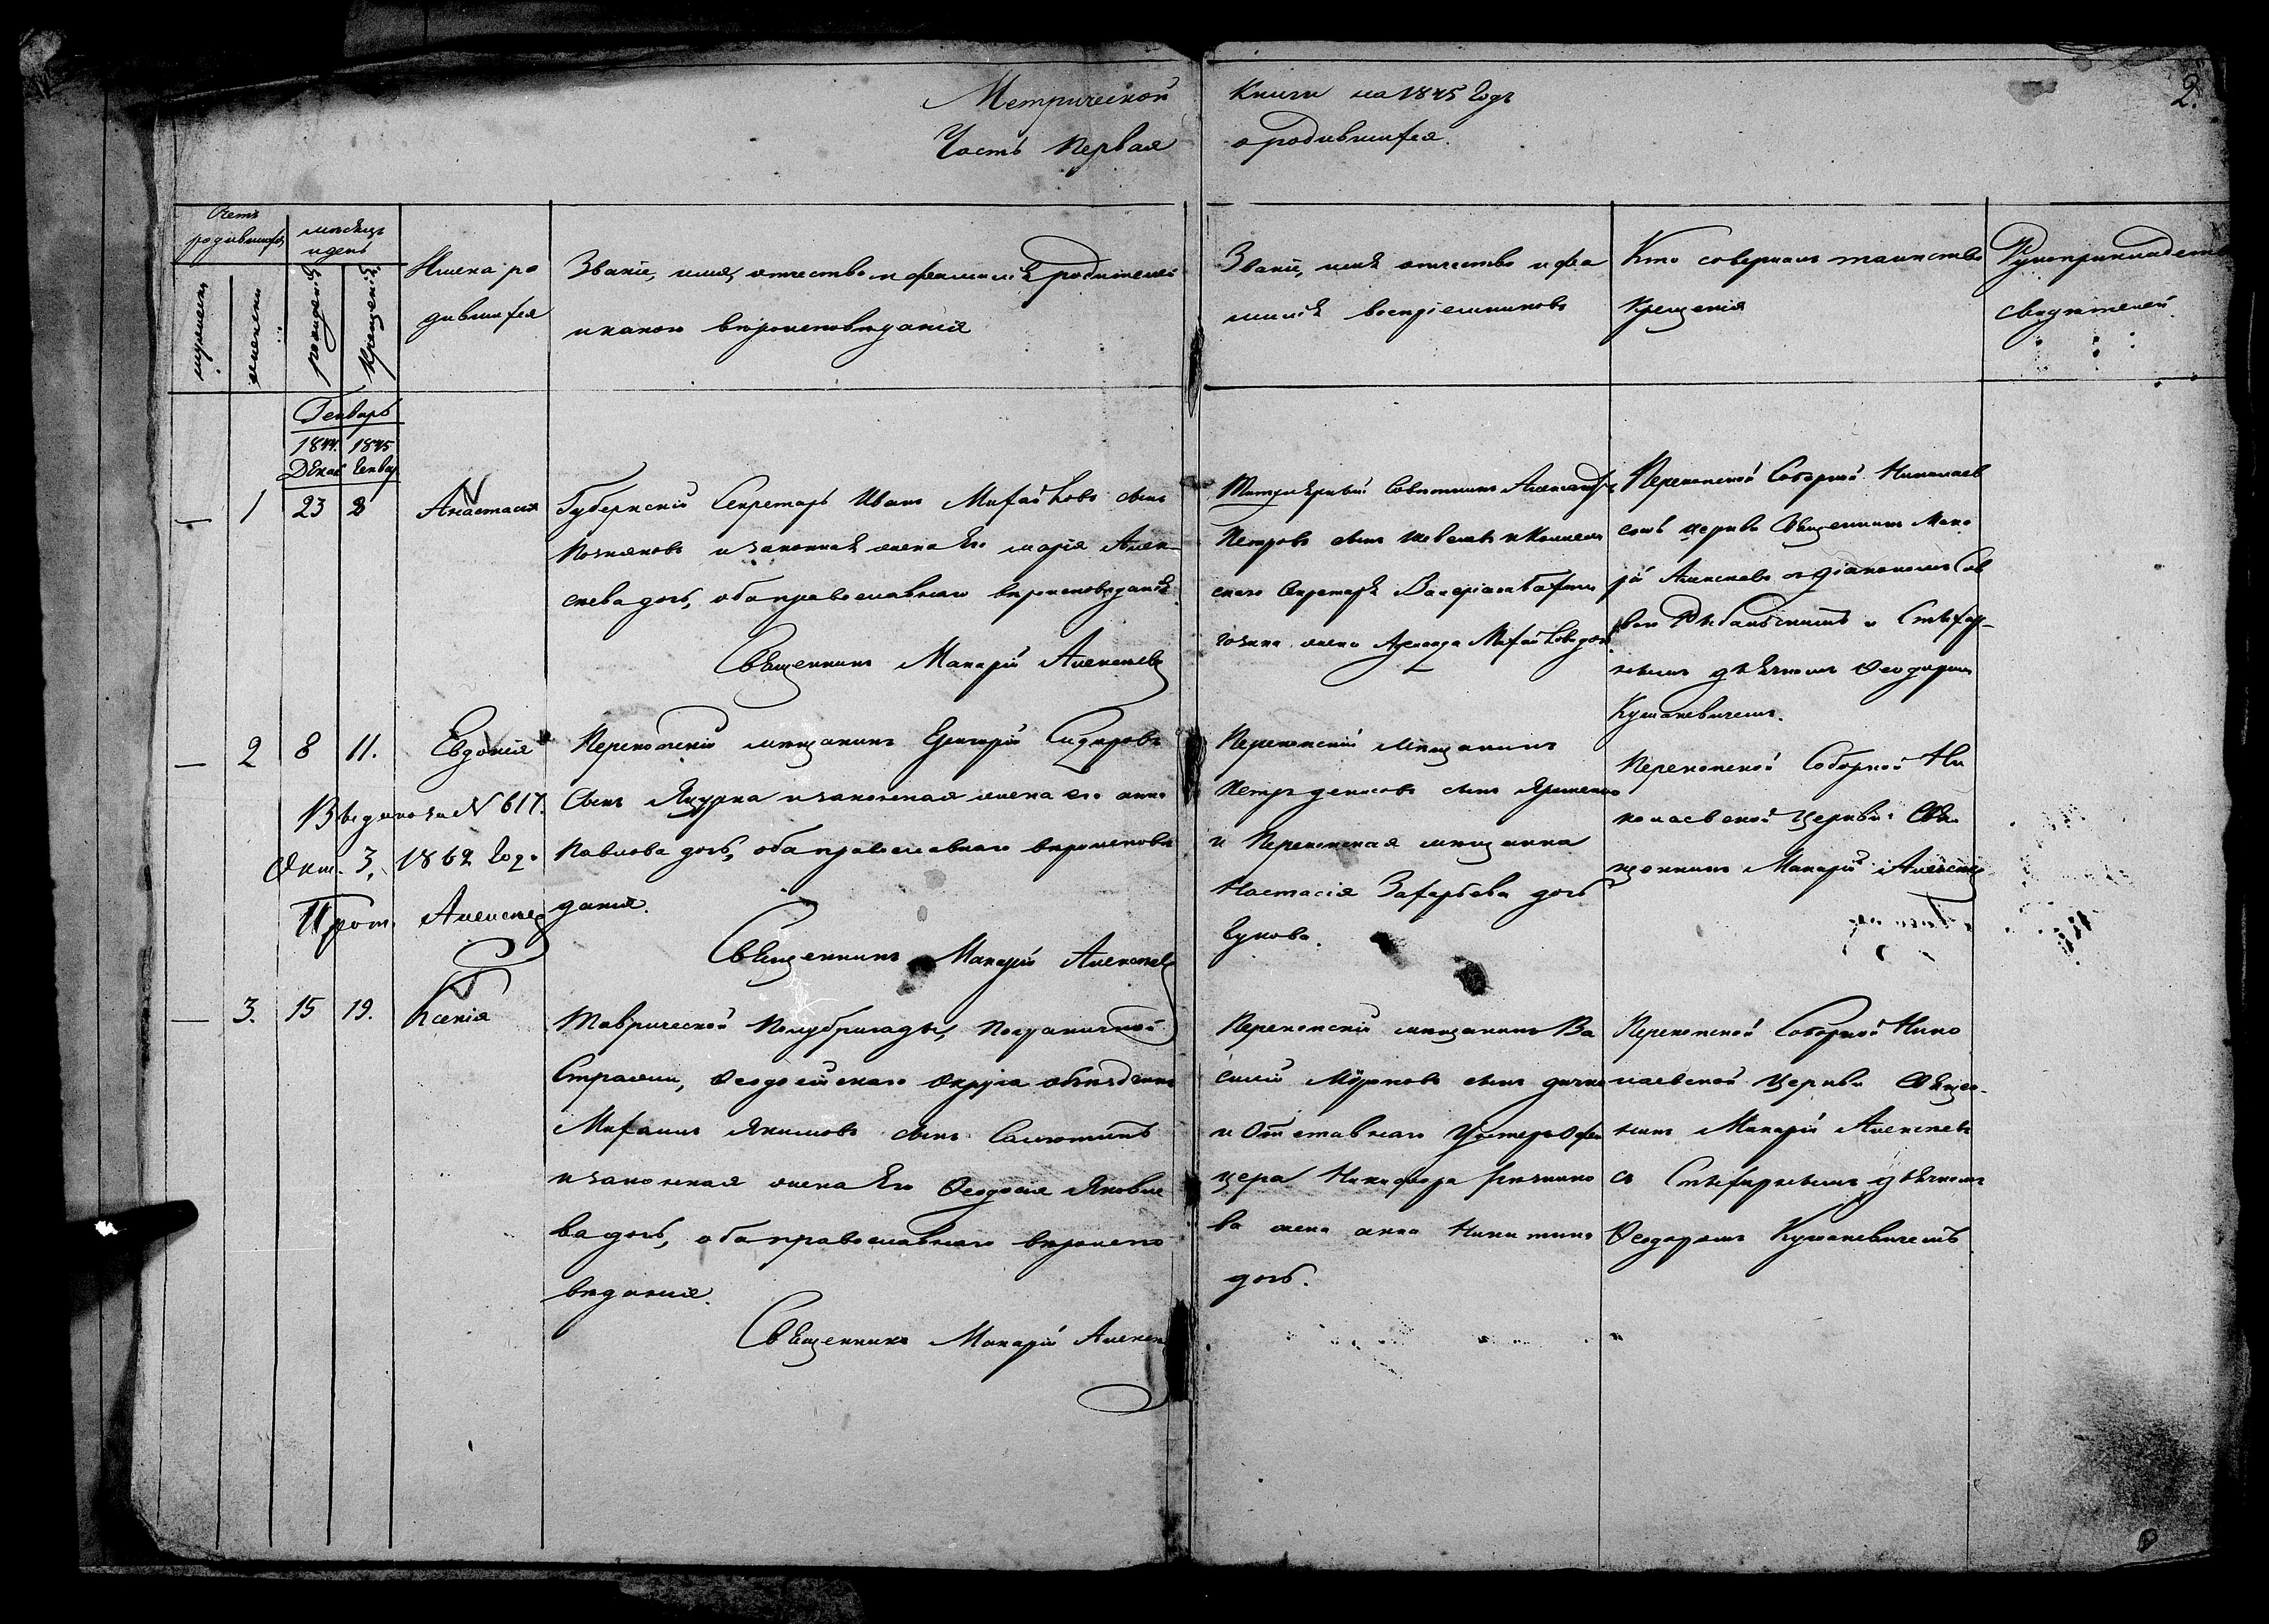 2.
Метрической Книги на 1845 Годъ
Часть Первая о родившихся.
Счетъ родившихся
мужеска
женска
месяцъ и день
рожденія
Крещенія
Имена ро
дившихся
Званіе, имя, отчество и фамилія родителей
и какого вѣроисповѣданія
Званіе, имя отчество и фа
милія воспріемниковъ
Кто совершалъ таинство
Крещенія
Рукоприкладство
свидѣтелей.
Генварь
1844. 1845
Декаб Генвар
— 1 23 2 Анастасія
Губернскій Секретарь Иванъ Михайловъ сынъ
Позняковъ и законная жена Его Марія Алек-
сѣева дочь, оба православнаго вѣроисповѣданія.
Священникъ Макарій Алексѣевъ
Титулярный Совѣтникъ Александръ
Петровъ сынъ и Коллеж
скаго Секретаря Валеріана
жена Михайлова дочь
Перекопской Соборной Николаев
ской церкви Священникъ Мака
рій Алексѣевъ съ діакономъ Сав
вою и Стихар-
нымъ дьячкомъ Ѳеодоромъ
Кушакевичемъ.
— 2 8 11. Евдокія
Перекопскій мѣщанинъ Григорій Сидоровъ
Сынъ Яцурка и законная жена его Анна
Павлова дочь, оба православнаго вѣроисповѣ
данія.
Священникъ Макарій Алексѣевъ
Выдано за N 617.
Окт. 3, 1862 Года
Прот. Алексѣевъ
Перекопскій мѣщанинъ
Петръ Денисовъ сынъ Яременко
и Перекопская мѣщанка
Настасія Захарьева дочь
Вукова.
Перекопской Соборной Ни
колаевской Церкви Свя
щенникъ Макарій Алексѣевъ
— 3. 15 19. Ксенія
Таврической Полубригады, Пограничной
Стражи, Ѳеодосійскаго Округа объѣздчикъ
Михаилъ Якимовъ сынъ
и законная жена Его Ѳеодосія Яковле
ва дочь, оба православнаго вѣроиспо
вѣданія.
Священникъ Макарій Алексѣевъ
Перекопскій мѣщанинъ Ва
силій Марковъ сынъ
и Отставнаго Унтеръ Офи
цера Никифора
ва жена Анна Никитина
дочь.
Перекопской Соборной Нико
лаевской Церкви Священ-
никъ Макарій Алексѣевъ
съ Стихарнымъ дьячкомъ
Ѳеодоромъ Кушакевичемъ